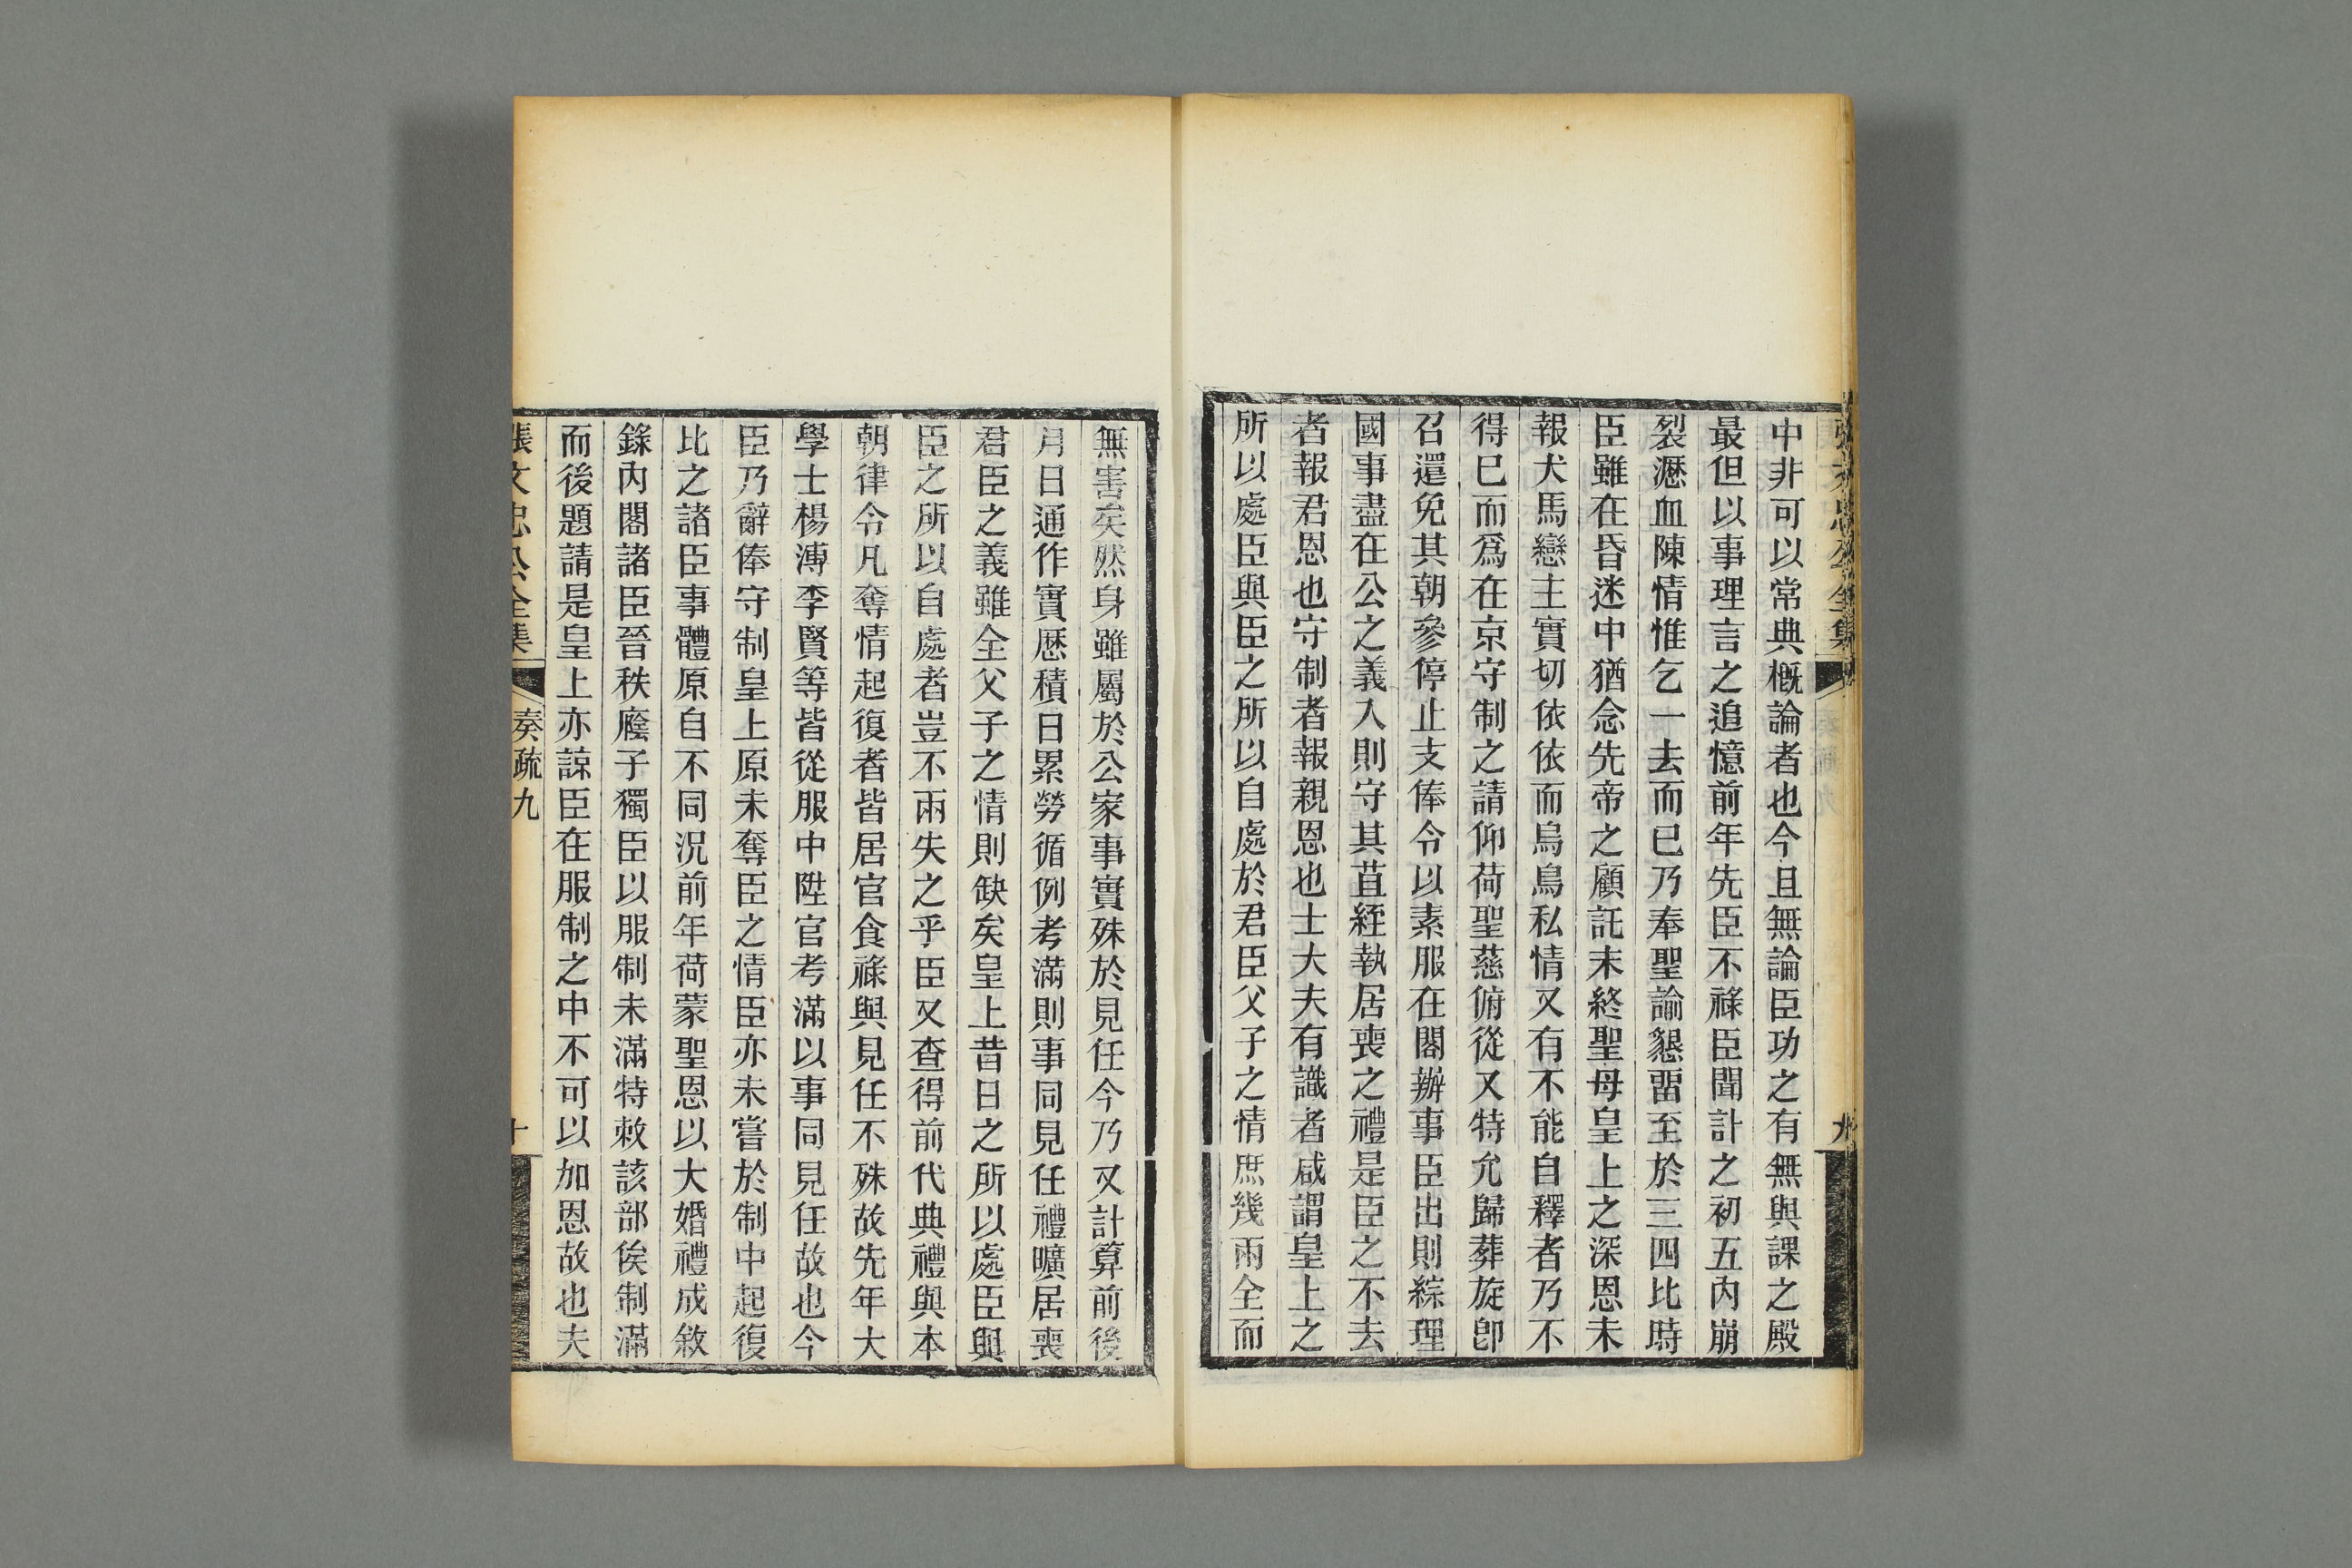 中非可以常典槪論者也今且無論臣功之有無與課之殿
最但以事理言之追憶前年先臣不祿臣聞訃之初五內崩
裂瀝血陳情惟乞一去而已乃奉聖諭懇畱至於三四比時
臣雖在昏迷中猶念先帝之顧託未終聖母皇上之深恩未
報犬馬戀主實切依依而烏鳥私情又有不能自釋者乃不
得已而爲在京守制之請仰荷聖慈俯從又特允歸葬旋卽
召還免其朝參停止支俸令以素服在閣辦事臣出則綜理
國事盡在公之義入則守其苴絰執居喪之禮是臣之不去
者報君恩也守制者報親恩也士大夫有識者咸謂皇上之
所以處臣與臣之所以自處於君臣父子之情庶幾兩全而
無害矣然身雖屬於公家事實殊於見任今乃又計算前後
月日通作實歷積日累勞循例考滿則事同見任禮曠居喪
君臣之義雖全父子之情則缺矣皇上昔日之所以處臣與
臣之所以自處者豈不兩失之乎臣又查得前代典禮與本
朝律令凡奪情起復者皆居官食祿與見任不殊故先年大
學士楊溥李賢等皆從服中陞官考滿以事同見任故也今
臣乃辭俸守制皇上原未奪臣之情臣亦未嘗於制中起復
比之諸臣事體原自不同況前年荷蒙聖恩以大婚禮成敘
錄內閣諸臣晉秩廕子獨臣以服制未滿特敕該部俟制滿
而後題請是皇上亦諒臣在服制之中不可以加恩故也夫
張文忠公全集
奏疏九
十